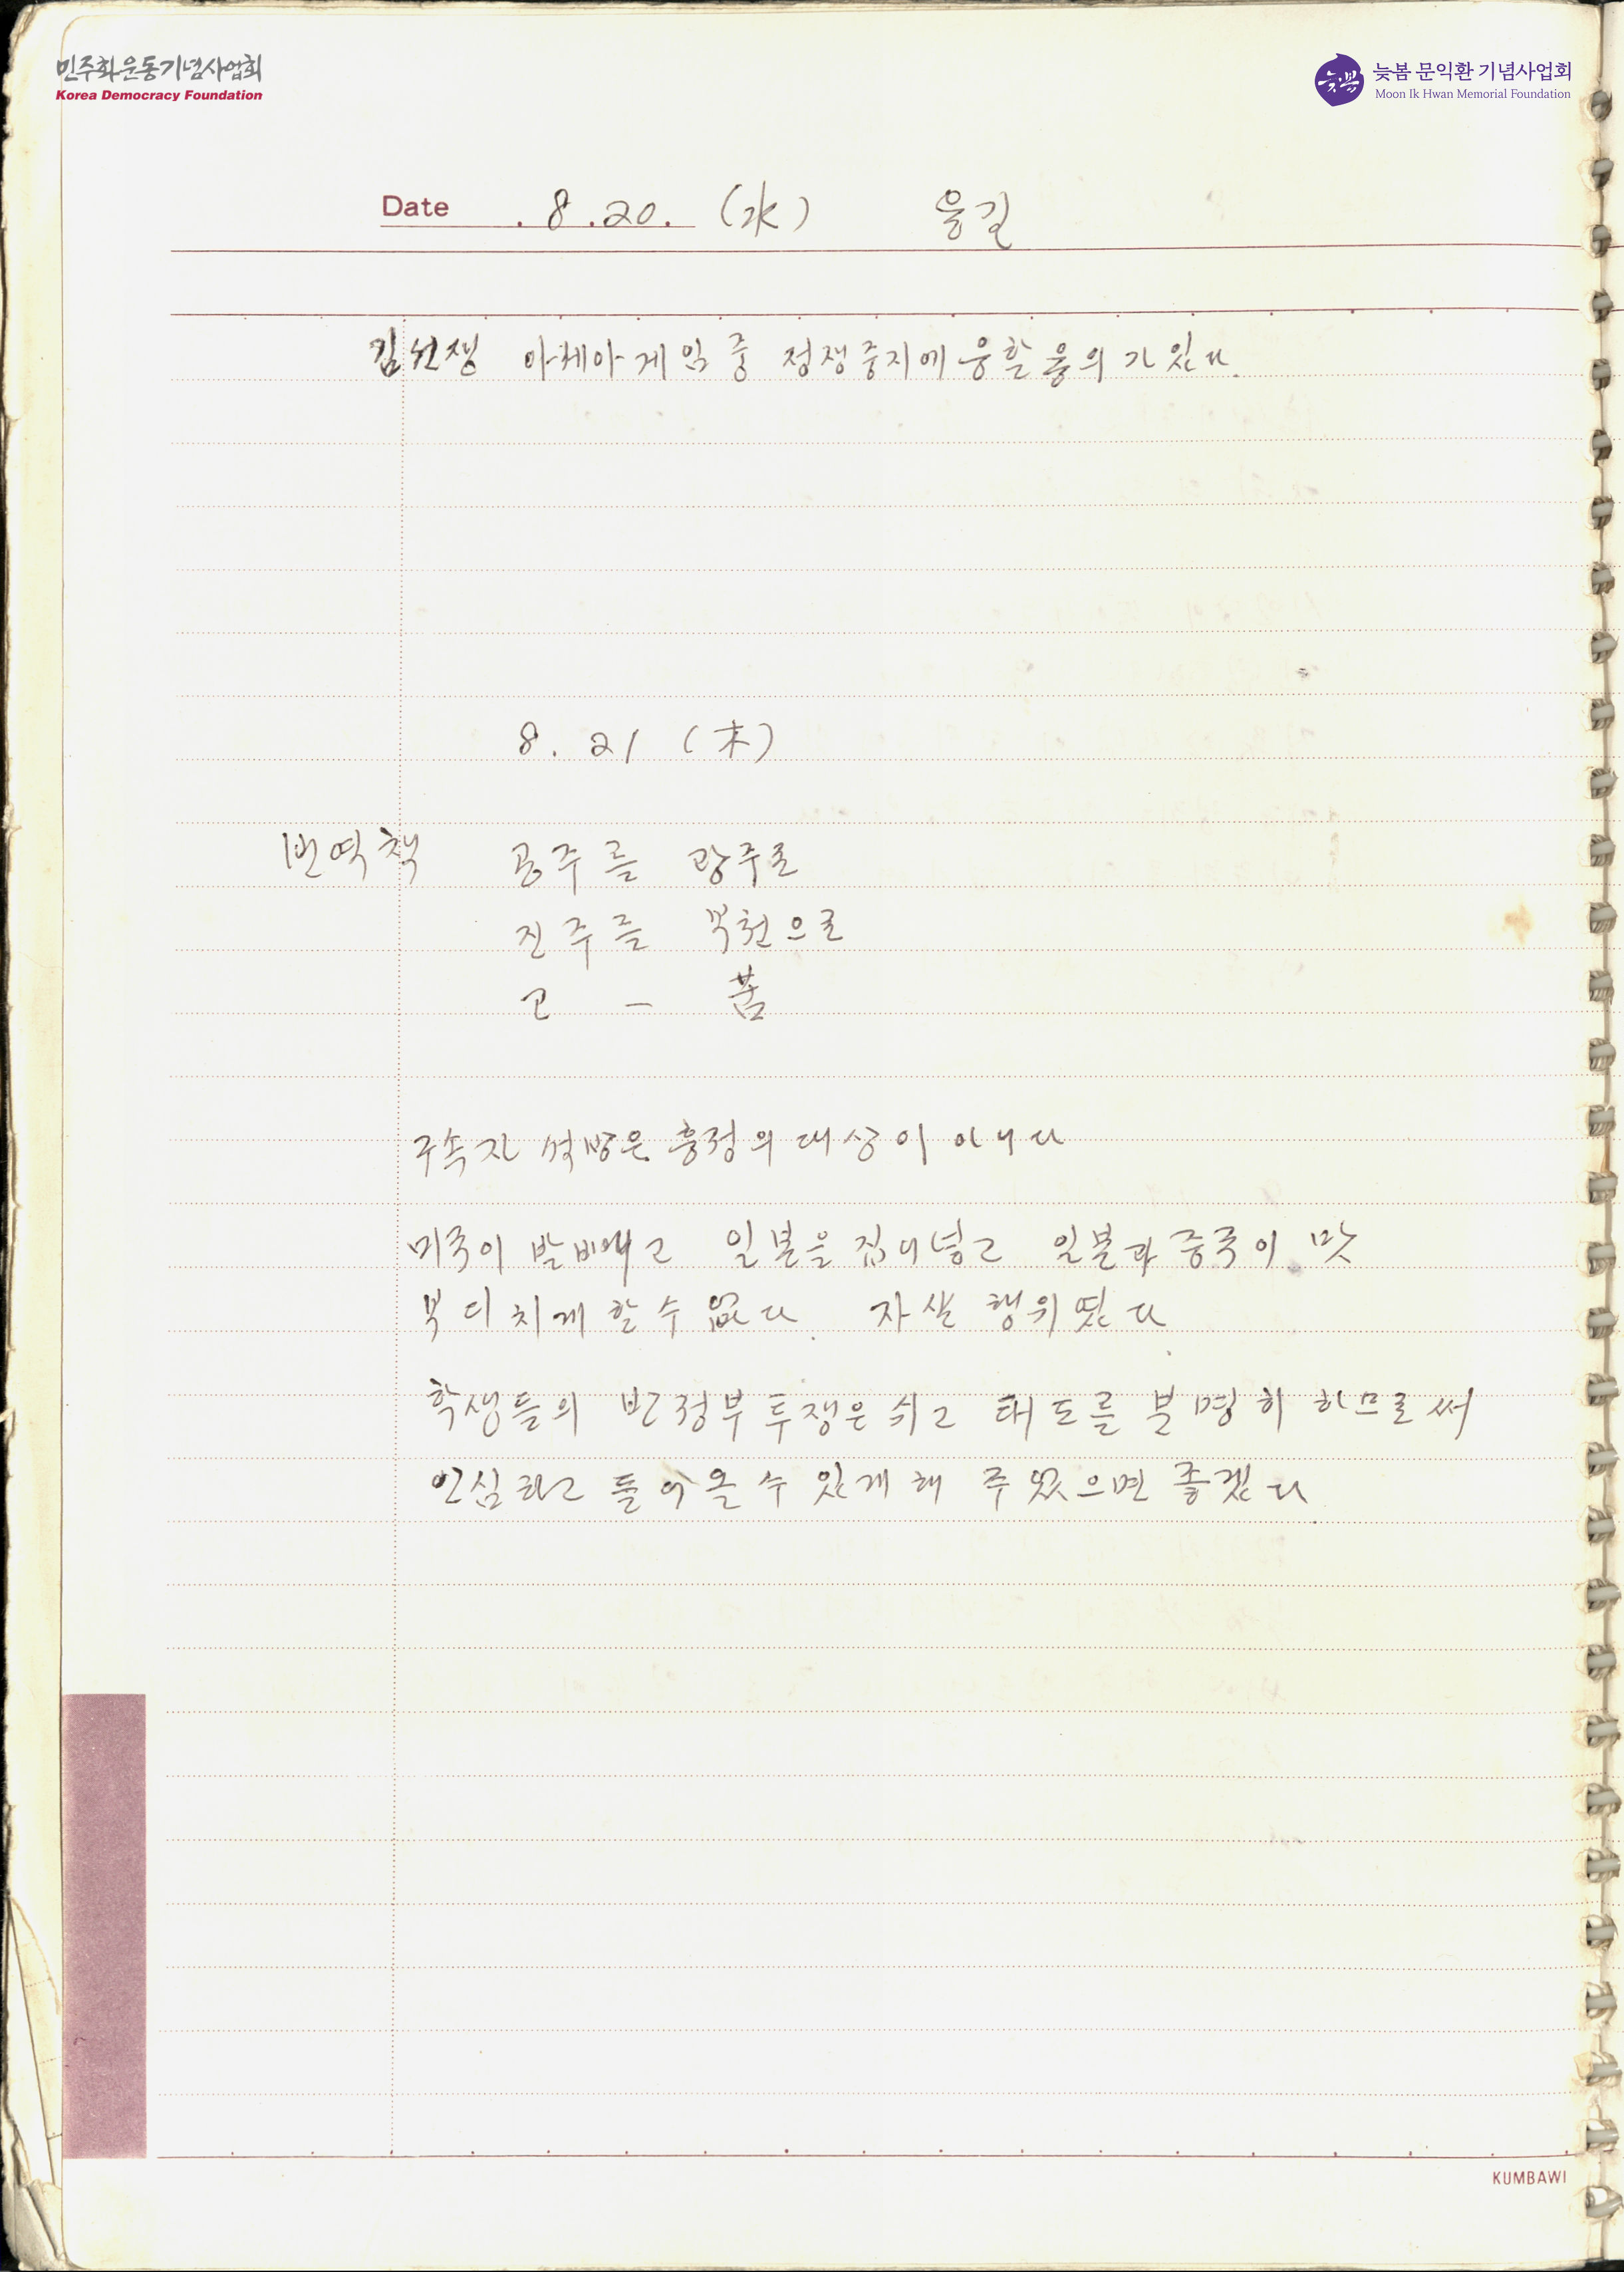 민주화운동기념사업회
Korea Democracy Foundation
늦봄 문익환 기념사업회
Moon Ik Hwan Memorial Foundation
늦봄
Date . 8 . 20 . (水) 용길
김선생 아세아게임중 정쟁중지에 응할 용의가 있다.
8. 21 (木)
번역책 공주를 광주로
진주를 북천으로
고 —
구속자 석방은 흥정의 대상이 아니다
미국이 발빼고 일본을 집어넣고 일본과 중국이 맛
부디치게 할 수 없다. 자살 행위였다
학생들의 반정부 투쟁은 쉬고 태도를 분명히 하므로써
안심하고 들어올 수 있게 해 주었으면 좋겠다.
KUMBAWI